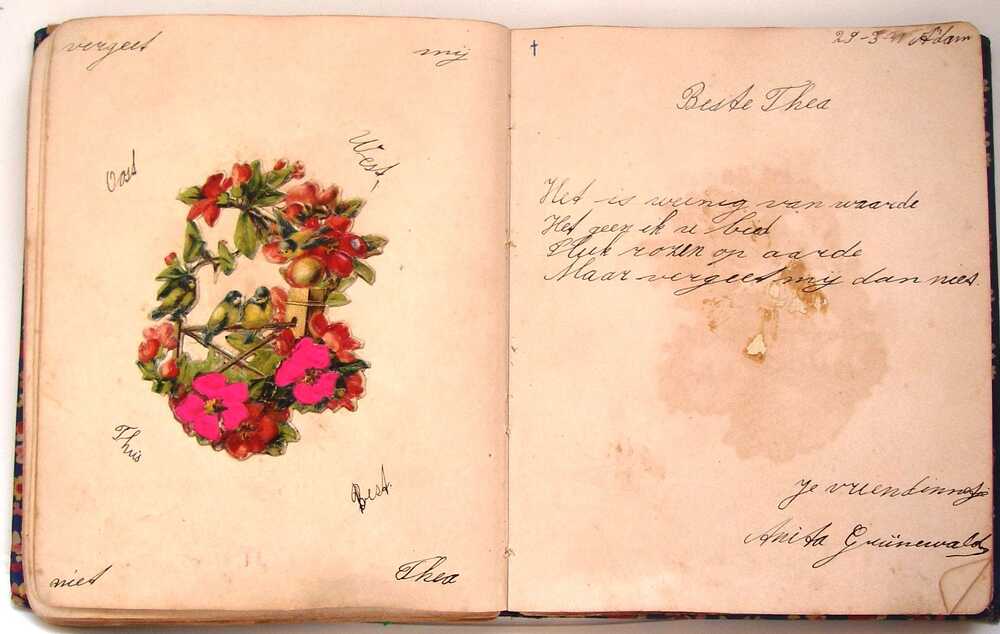 vergeet mij
Oost West,
Thuis Best.
niet Thea
29-3-41 A'dam
Beste Thea
Het is weinig van waarde
Het geen ik u bied
Pluk rozen op aarde
Maar vergeet mij dan niet.
Je vriendinnetje
Anita Grünewald